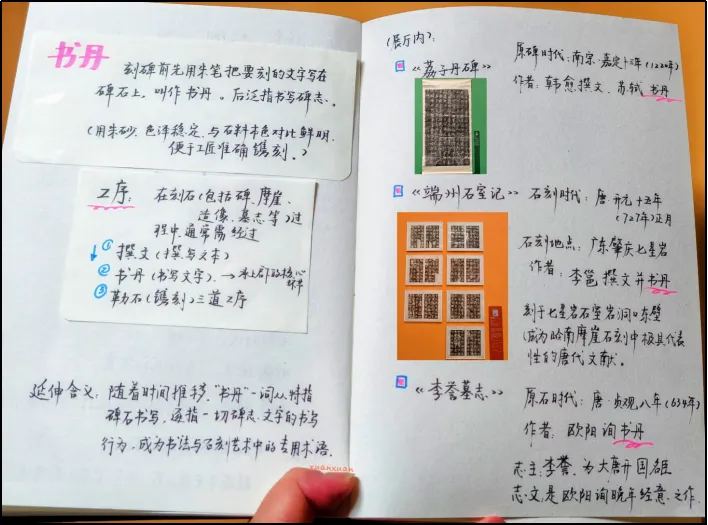 书丹
刻碑前先用朱笔把要刻的文字写在
碑石上。叫作 书丹。后泛指书写碑志。
(用朱砂、色泽稳定、与石料本色对比鲜明、
便于工匠准确镌刻。)
工序:
在刻石(包括碑、摩崖、
造像、墓志等)过
程中,通常需经过
① 撰文(撰写文本)
② 书丹(书写文字)、→
③ 勒石(镌刻)三道工序
延伸含义: 随着时间推移,"书丹"一词从特指
碑石书写、逐指一切碑志文字的书写
行为,成为书法与石刻艺术中的专用术语.
xuanxuan
(展厅内):
《荔子丹碑》
原碑时代:南宋·嘉定十三年(1220年)
作者: 韩愈撰文、苏轼书丹
《端州石室记》
石刻时代: 唐·开元十五年
(727年)正月
石刻地点: 广东肇庆七星岩
作者: 李邕撰文并书丹
刻于七星岩石室岩洞口东壁
(成为岭南摩崖石刻中极具代表
性的唐代文献。
《李誉墓志》
原石时代: 唐·贞观八年(634年)
作者: 欧阳询书丹
志主:李誉、为大唐开国雄
志文是欧阳询晚年经意之作.